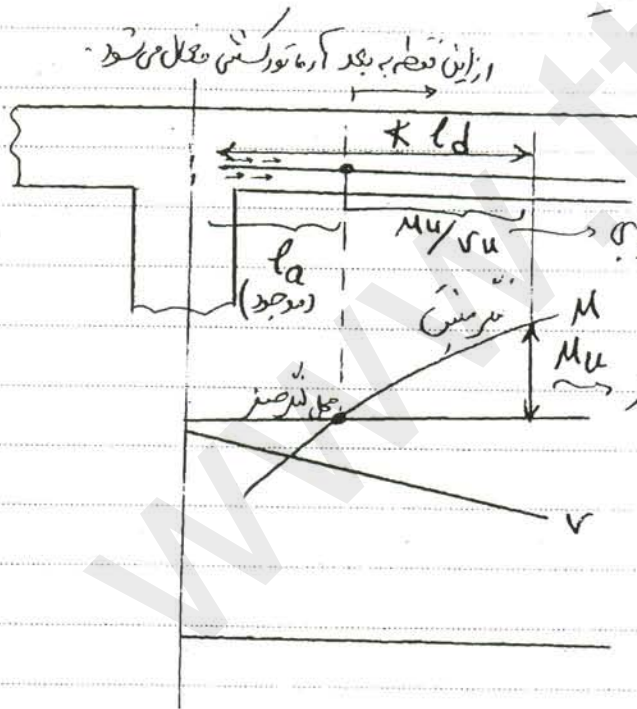 از این نقطه به بعد آرماتور کششی فعال می‌شود.
* ld
Mu/Vu
la
(موجود)
M
Mu
محل لنگر صفر
V
www.